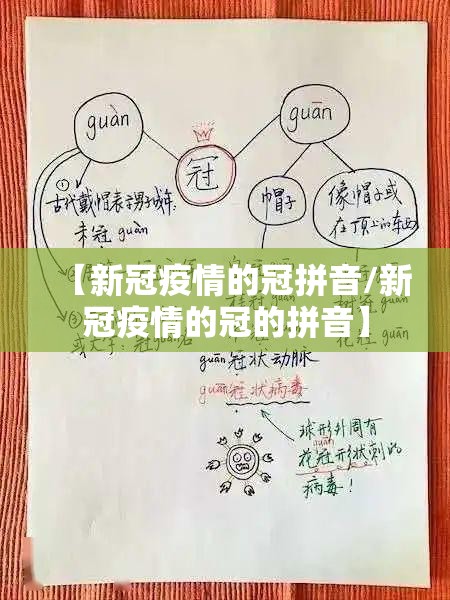 guàn
guān
冠
①
古代戴帽表示男子成年:
未冠 guàn
帽子
像帽子或
在顶上的东西
【新冠疫情的冠拼音/新
冠疫情的冠的拼音】
guān冠状动脉
guān冠状病毒
球形外周有
guān
花冠形状刺的
病毒!